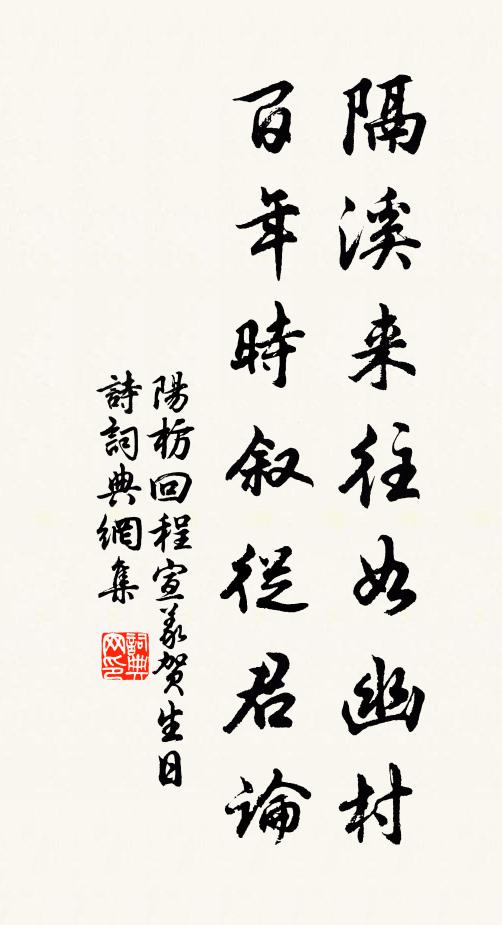 隔溪来往如幽村
百年時叙從君論
陽枋回程宣义贺生日
詩詞典網集
詞典网印